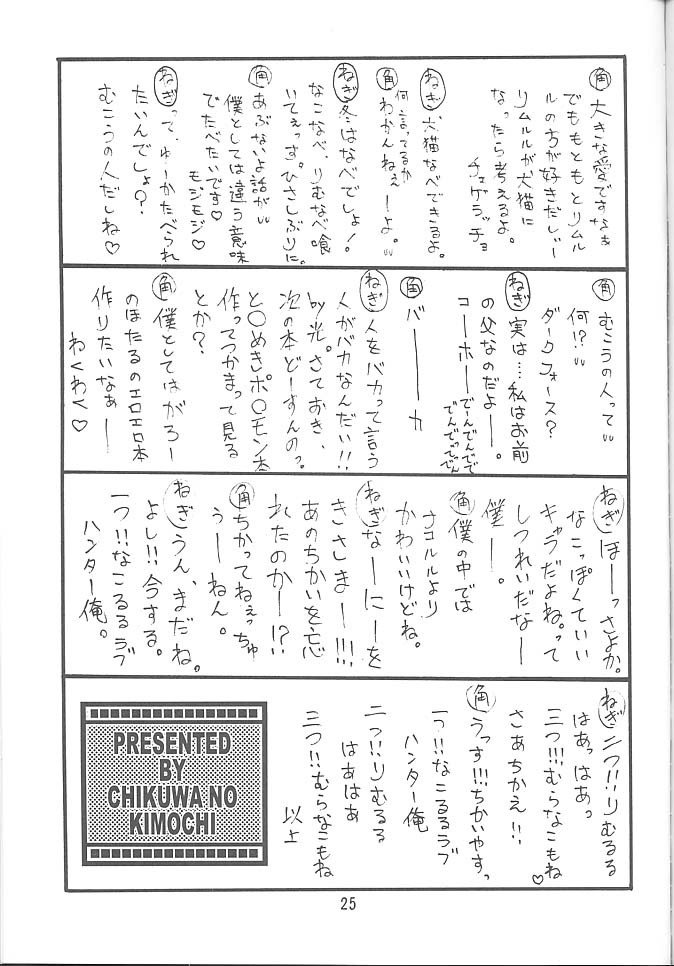 角 大きな愛ですなぁ
でももともとリムル
ルの方が好きだしぃー
リムルルが犬猫に
なったら考えるよ。
チェゲラッチョ
ねぎ 犬猫なべできるよ。
角 何言ってるか
わかんねぇーよ。
ねぎ 冬はなべでしょ!
なこなべ、りむなべ喰
いてぇっす。ひさしぶりに。
角 あぶないよ話が
僕としては違う意味
でたべたいです♡
モジモジ♡
ねぎ って、ゆーかたべられ
たいんでしょ?
むこうの人だしね♡
角 むこうの人って
何!?
ダークフォース?
ねぎ 実は…私はお前
の父なのだよー。
コーホー でーんでんでんで
でんでっででん
角 バーーーカ
ねぎ 人をバカって言う
人がバカなんだい!!
by光。さておき、
次の本どーすんの?
と○めきポ○モン本
作ってつかまって見る
とか?
角 僕としてはがろー
のほたるのエロエロ本
作りたいなぁー
わくわく♡
ねぎ ほーっさよか。
なこっぽくていい
キャラだよね。って
しつれいだなー
僕ー。
角 僕の中では
ナコルルより
かわいいけどね。
ねぎ なーにーを
きさしまー!!!
あのちかいを忘
れたのかー!?
角 ちかってねぇっちゅ
うーねん。
ねぎ うん、まだね。
よし!!今する。
一つ!!なこるるラブ
ハンター俺。
ねぎ 二つ!!りむるる
はあっはあっ
三つ!!!むらなこもね♡
さあちかえ!!
角 うっす!!!ちかいやすっ
一つ!!なこるるラブ
ハンター俺
二つ!!りむるる
はあはあ
三つ!!むらなこもね
以上
PRESENTED
BY
CHIKUWA NO
KIMOCHI
25